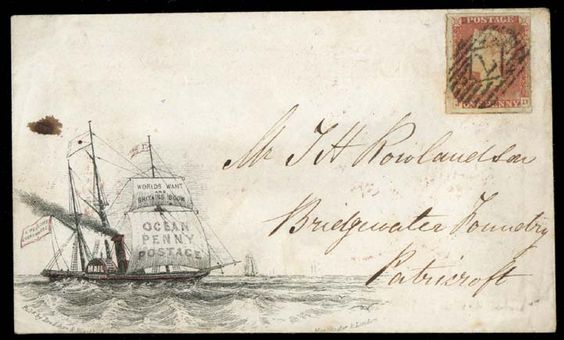 POSTAGE
ONE PENNY
WORLDS WANT
AND
BRITAINS BOON
OCEAN
PENNY
POSTAGE
Mr J H Rowlandson
Bridgewater Foundry
Patricroft